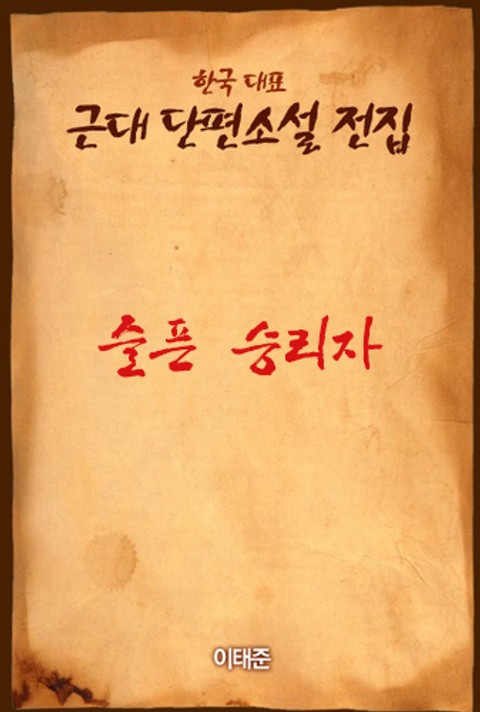 한국 대표
근대 단편소설 전집
슬픈 승리자
이태준